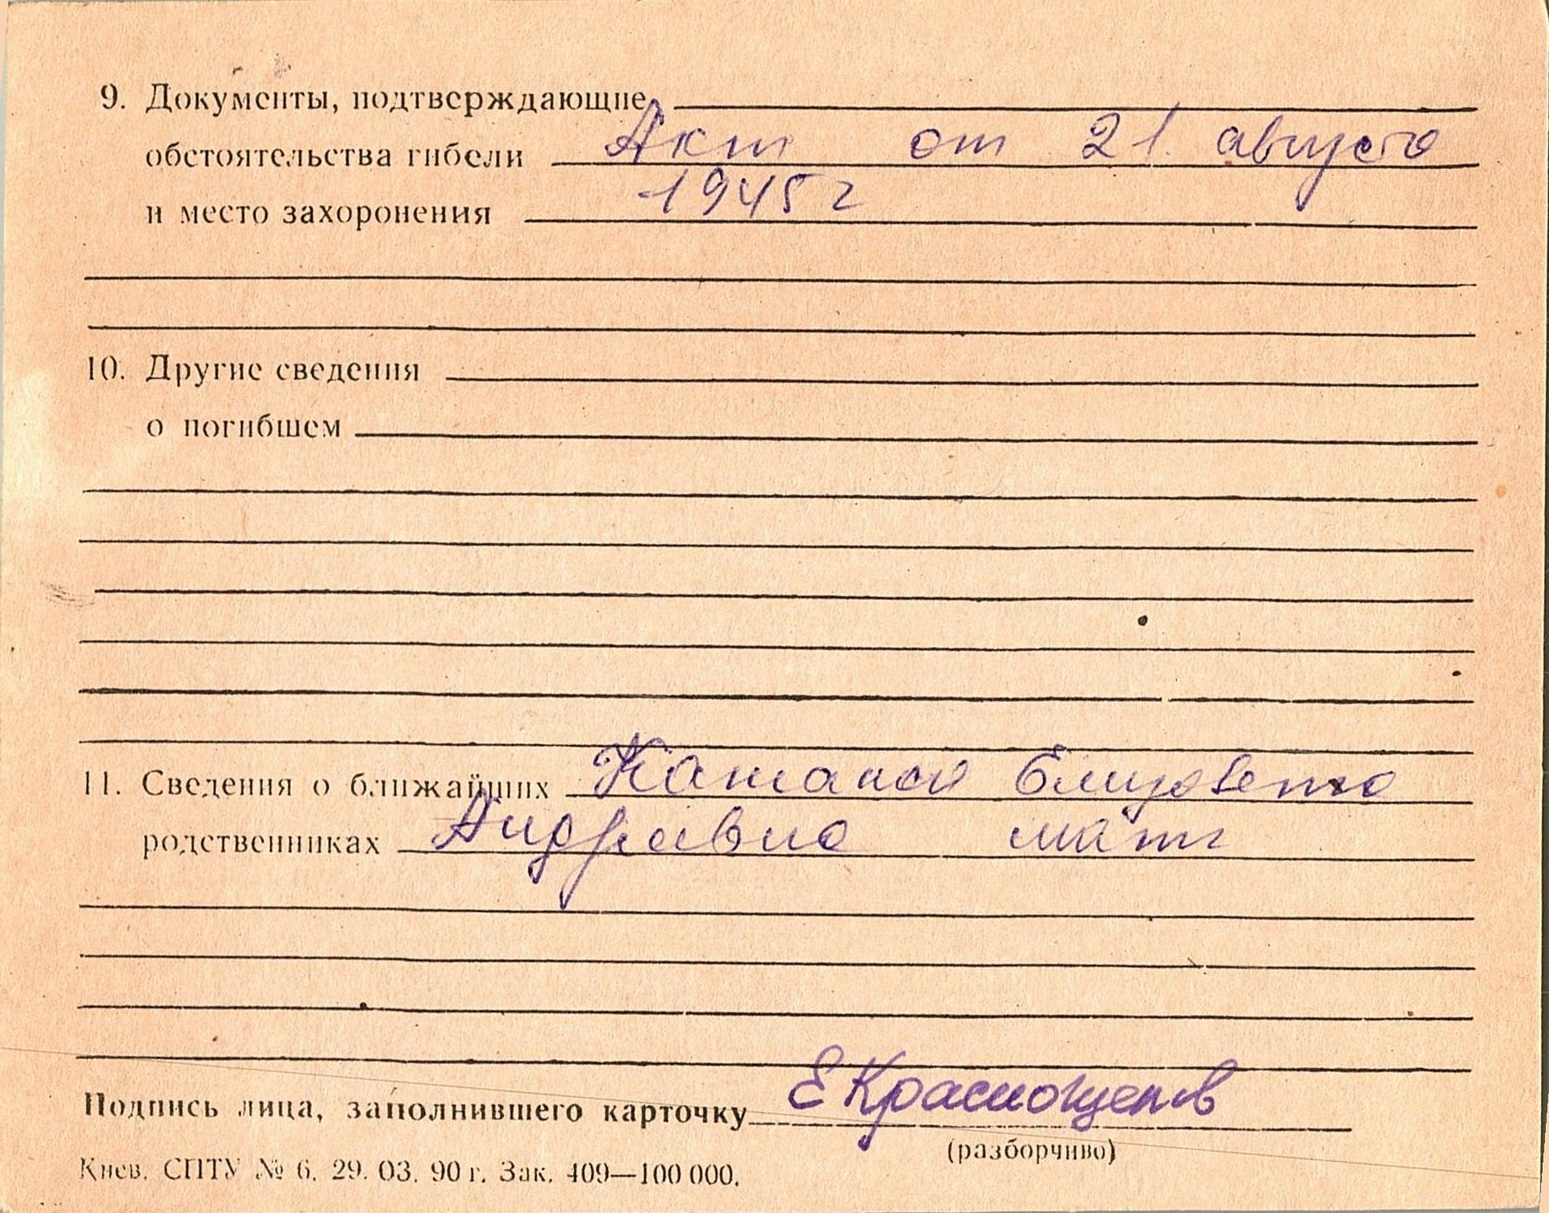 9. Документы, подтверждающие
обстоятельства гибели Акт от 21 августа
и место захоронения 1945 г
10. Другие сведения
о погибшем
11. Сведения о ближайших Елизавета
родственниках Андреевна мать
Подпись лица, заполнившего карточку Е Краснощеков
(разборчиво)
Киев. СПТУ № 6. 29. 03. 90 г. Зак. 409—100 000.